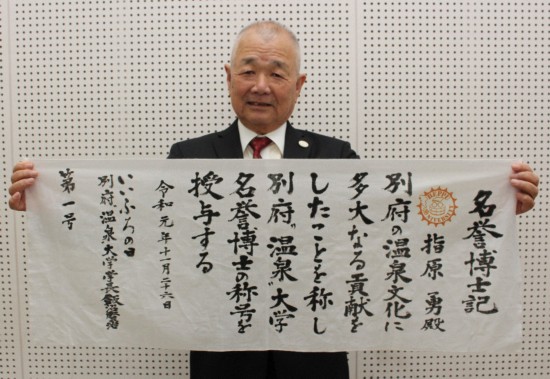 名誉博士記
指原 勇殿
別府の温泉文化に
多大なる貢献を
したことを称し
別府"温泉"大学
名誉博士の称号を
授与する
令和元年十一月二十六日
いいふろの日
別府"温泉大学"学長
第一号